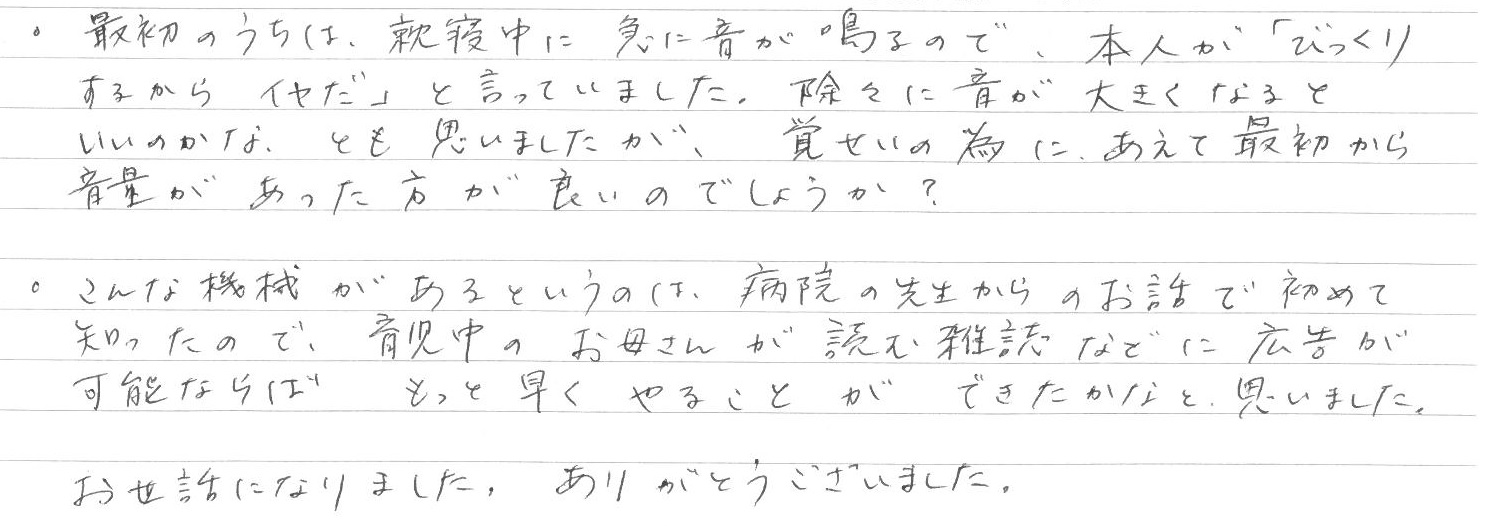 。最初のうちは、就寝中に 急に音が鳴るので、本人が「びっくり
するから イヤだ」と言っていました。除々に音が 大きくなると
いいのかな、とも 思いましたが、覚せいの為に、あえて最初から
音量が あった方が良いのでしょうか?
。こんな機械が あるというのは、病院の先生からのお話で初めて
知ったので、育児中の お母さんが 読む雑誌などに広告が
可能ならば もっと早く やることが できたかなと、思いました。
お世話になりました。ありがとうございました。